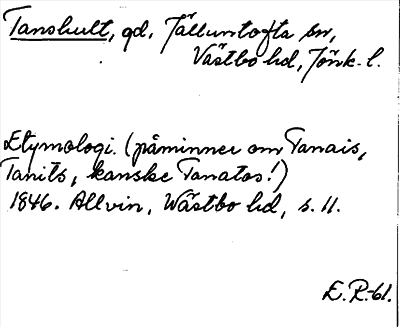 Tanshult, gd, Jälluntofta sn,
Västbo hd, Jönk. l.
Etymologi. (påminner om Tanais,
Tanits, kanske Tanatos!)
1846. Allvin, Wästbo hd, s. 11.
E. R-61.